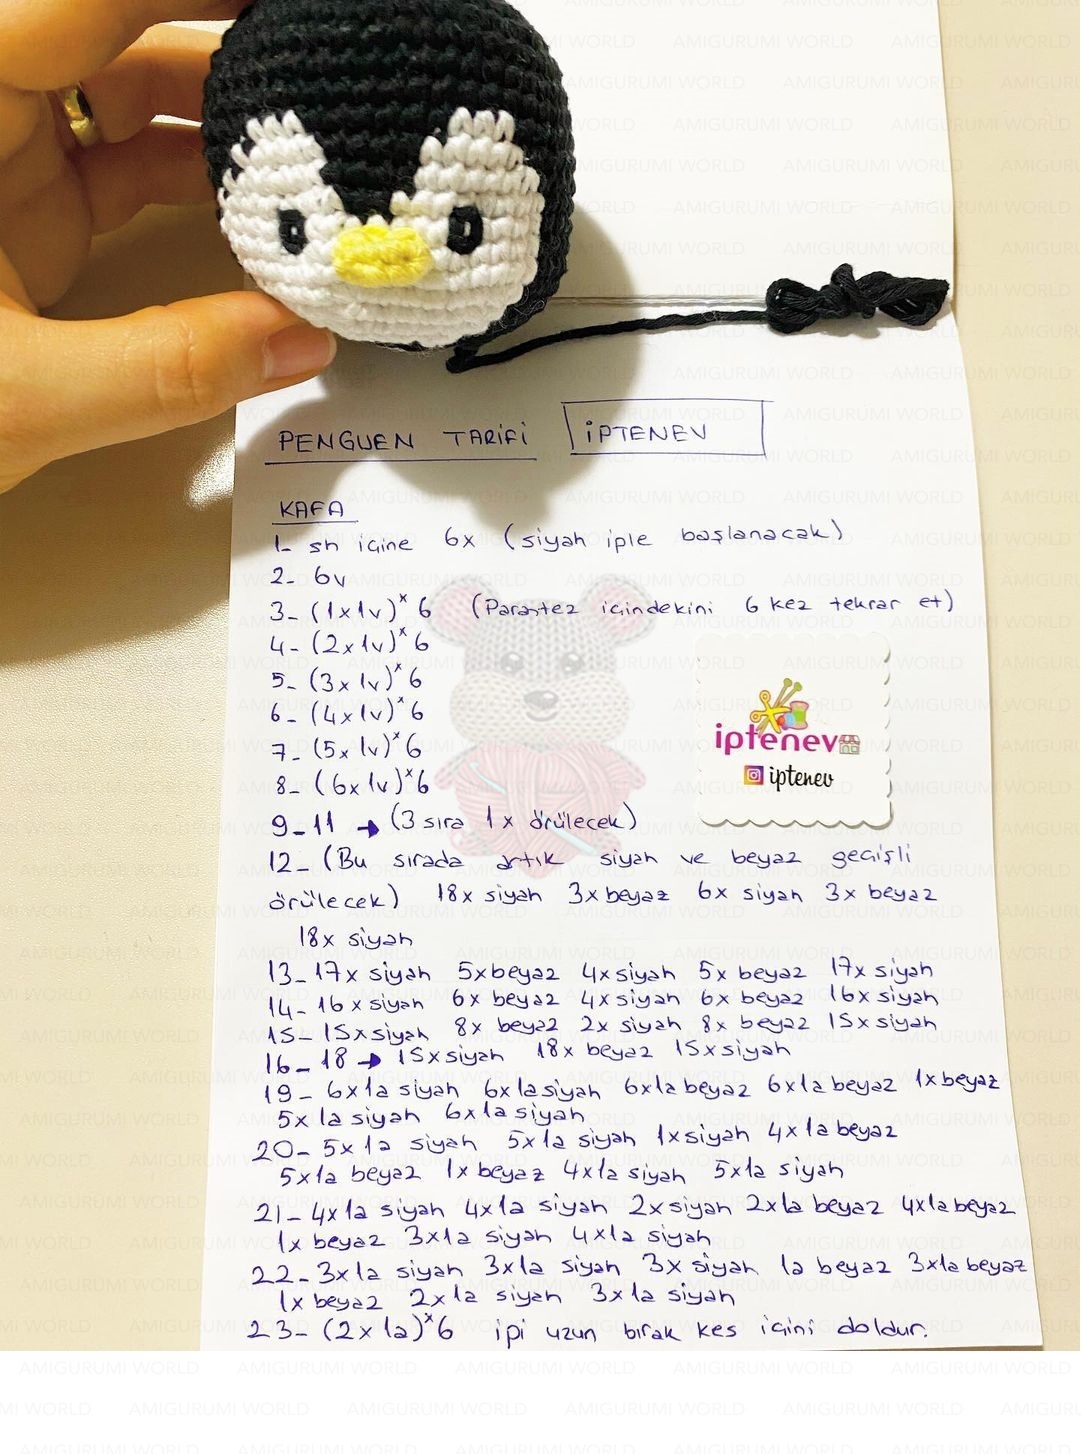 PENGUEN TARİFİ İPTENEV
KAFA
1- sh içine 6x (siyah iple başlanacak)
2- 6v
3- (1x1v)ˣ6 (Parantez içindekini 6 kez tekrar et)
4- (2x1v)ˣ6
5- (3x1v)ˣ6
6- (4x1v)ˣ6
7- (5x1v)ˣ6
8- (6x1v)ˣ6
iptenev
iptenev
9-11 → (3 sıra 1x örülecek)
12- (Bu sırada artık siyah ve beyaz geçişli
örülecek) 18x siyah 3x beyaz 6x siyah 3x beyaz
18x siyah
13- 17x siyah 5x beyaz 4x siyah 5x beyaz 17x siyah
14- 16x siyah 6x beyaz 4x siyah 6x beyaz 16x siyah
15- 15x siyah 8x beyaz 2x siyah 8x beyaz 15x siyah
16-18 → 15x siyah 18x beyaz 15x siyah
19- 6x1a siyah 6x1a siyah 6x1a beyaz 6x1a beyaz 1x beyaz
5x1a siyah 6x1a siyah
20- 5x1a siyah 5x1a siyah 1x siyah 4x1a beyaz
5x1a beyaz 1x beyaz 4x1a siyah 5x1a siyah
21- 4x1a siyah 4x1a siyah 2x siyah 2x1a beyaz 4x1a beyaz
1x beyaz 3x1a siyah 4x1a siyah
22- 3x1a siyah 3x1a siyah 3x siyah 1a beyaz 3x1a beyaz
1x beyaz 2x1a siyah 3x1a siyah
23- (2x1a)ˣ6 ipi uzun bırak kes içini doldur.
AMIGURUMI WORLD